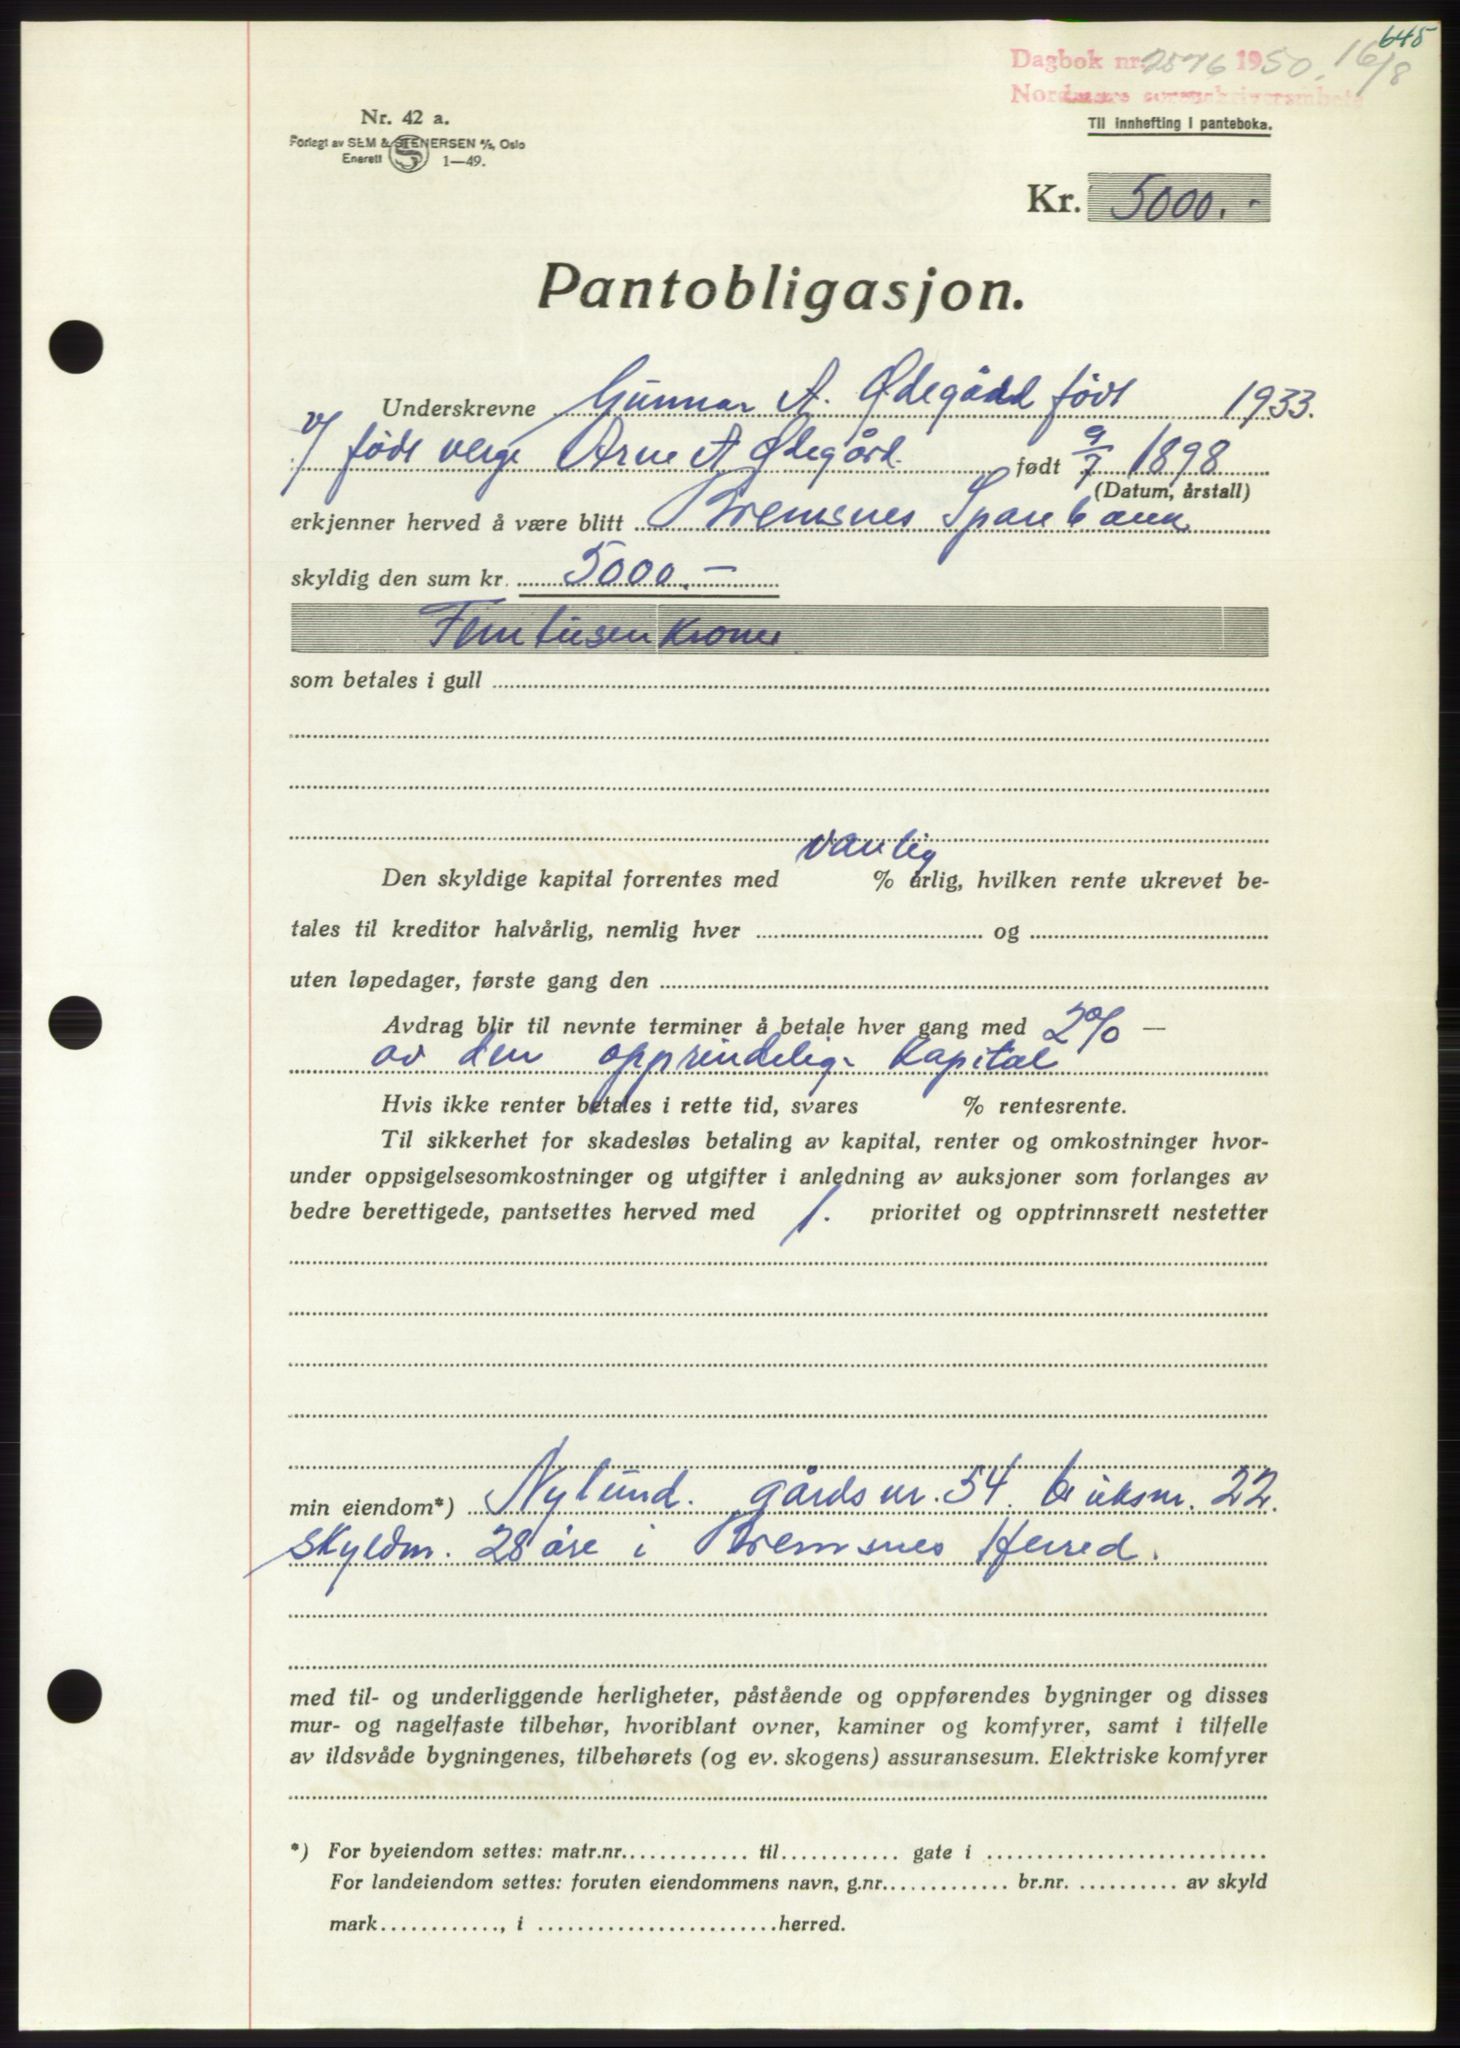 645
Dagbok nr. 2576 1950. 16/8
Nordmøre sorenskriverembete
Til innhefting i panteboka.
Nr. 42 a.
Forlegt av SEM & STENERSEN A/S, Oslo
Enerett 1—49.
Kr. 5000.-
Pantobligasjon.
Underskrevne Gunnar A. Ødegård født 1933.
v/ født verge Arne A Ødegård. født 9/7 1898
(Datum, årstall)
erkjenner herved å være blitt Bremsnes Sparebank
skyldig den sum kr. 5000.-
Femtusen kroner
som betales i gull
vanlig
Den skyldige kapital forrentes med % årlig, hvilken rente ukrevet be-
tales til kreditor halvårlig, nemlig hver og
uten løpedager, første gang den
Avdrag blir til nevnte terminer å betale hver gang med 2% —
av den opprindelige kapital
Hvis ikke renter betales i rette tid, svares % rentesrente.
Til sikkerhet for skadesløs betaling av kapital, renter og omkostninger hvor-
under oppsigelsesomkostninger og utgifter i anledning av auksjoner som forlanges av
bedre berettigede, pantsettes herved med 1. prioritet og opptrinnsrett nestetter
min eiendom*) Nylund. gårdsnr. 54. bruksnr. 22.
skyldm. 28 øre i Bremsnes Herred.
med til- og underliggende herligheter, påstående og oppførendes bygninger og disses
mur- og nagelfaste tilbehør, hvoriblant ovner, kaminer og komfyrer, samt i tilfelle
av ildsvåde bygningenes, tilbehørets (og ev. skogens) assuransesum. Elektriske komfyrer
*) For byeiendom settes: matr.nr. til gate i
For landeiendom settes: foruten eiendommens navn, g.nr. br.nr. av skyld
mark , i herred.